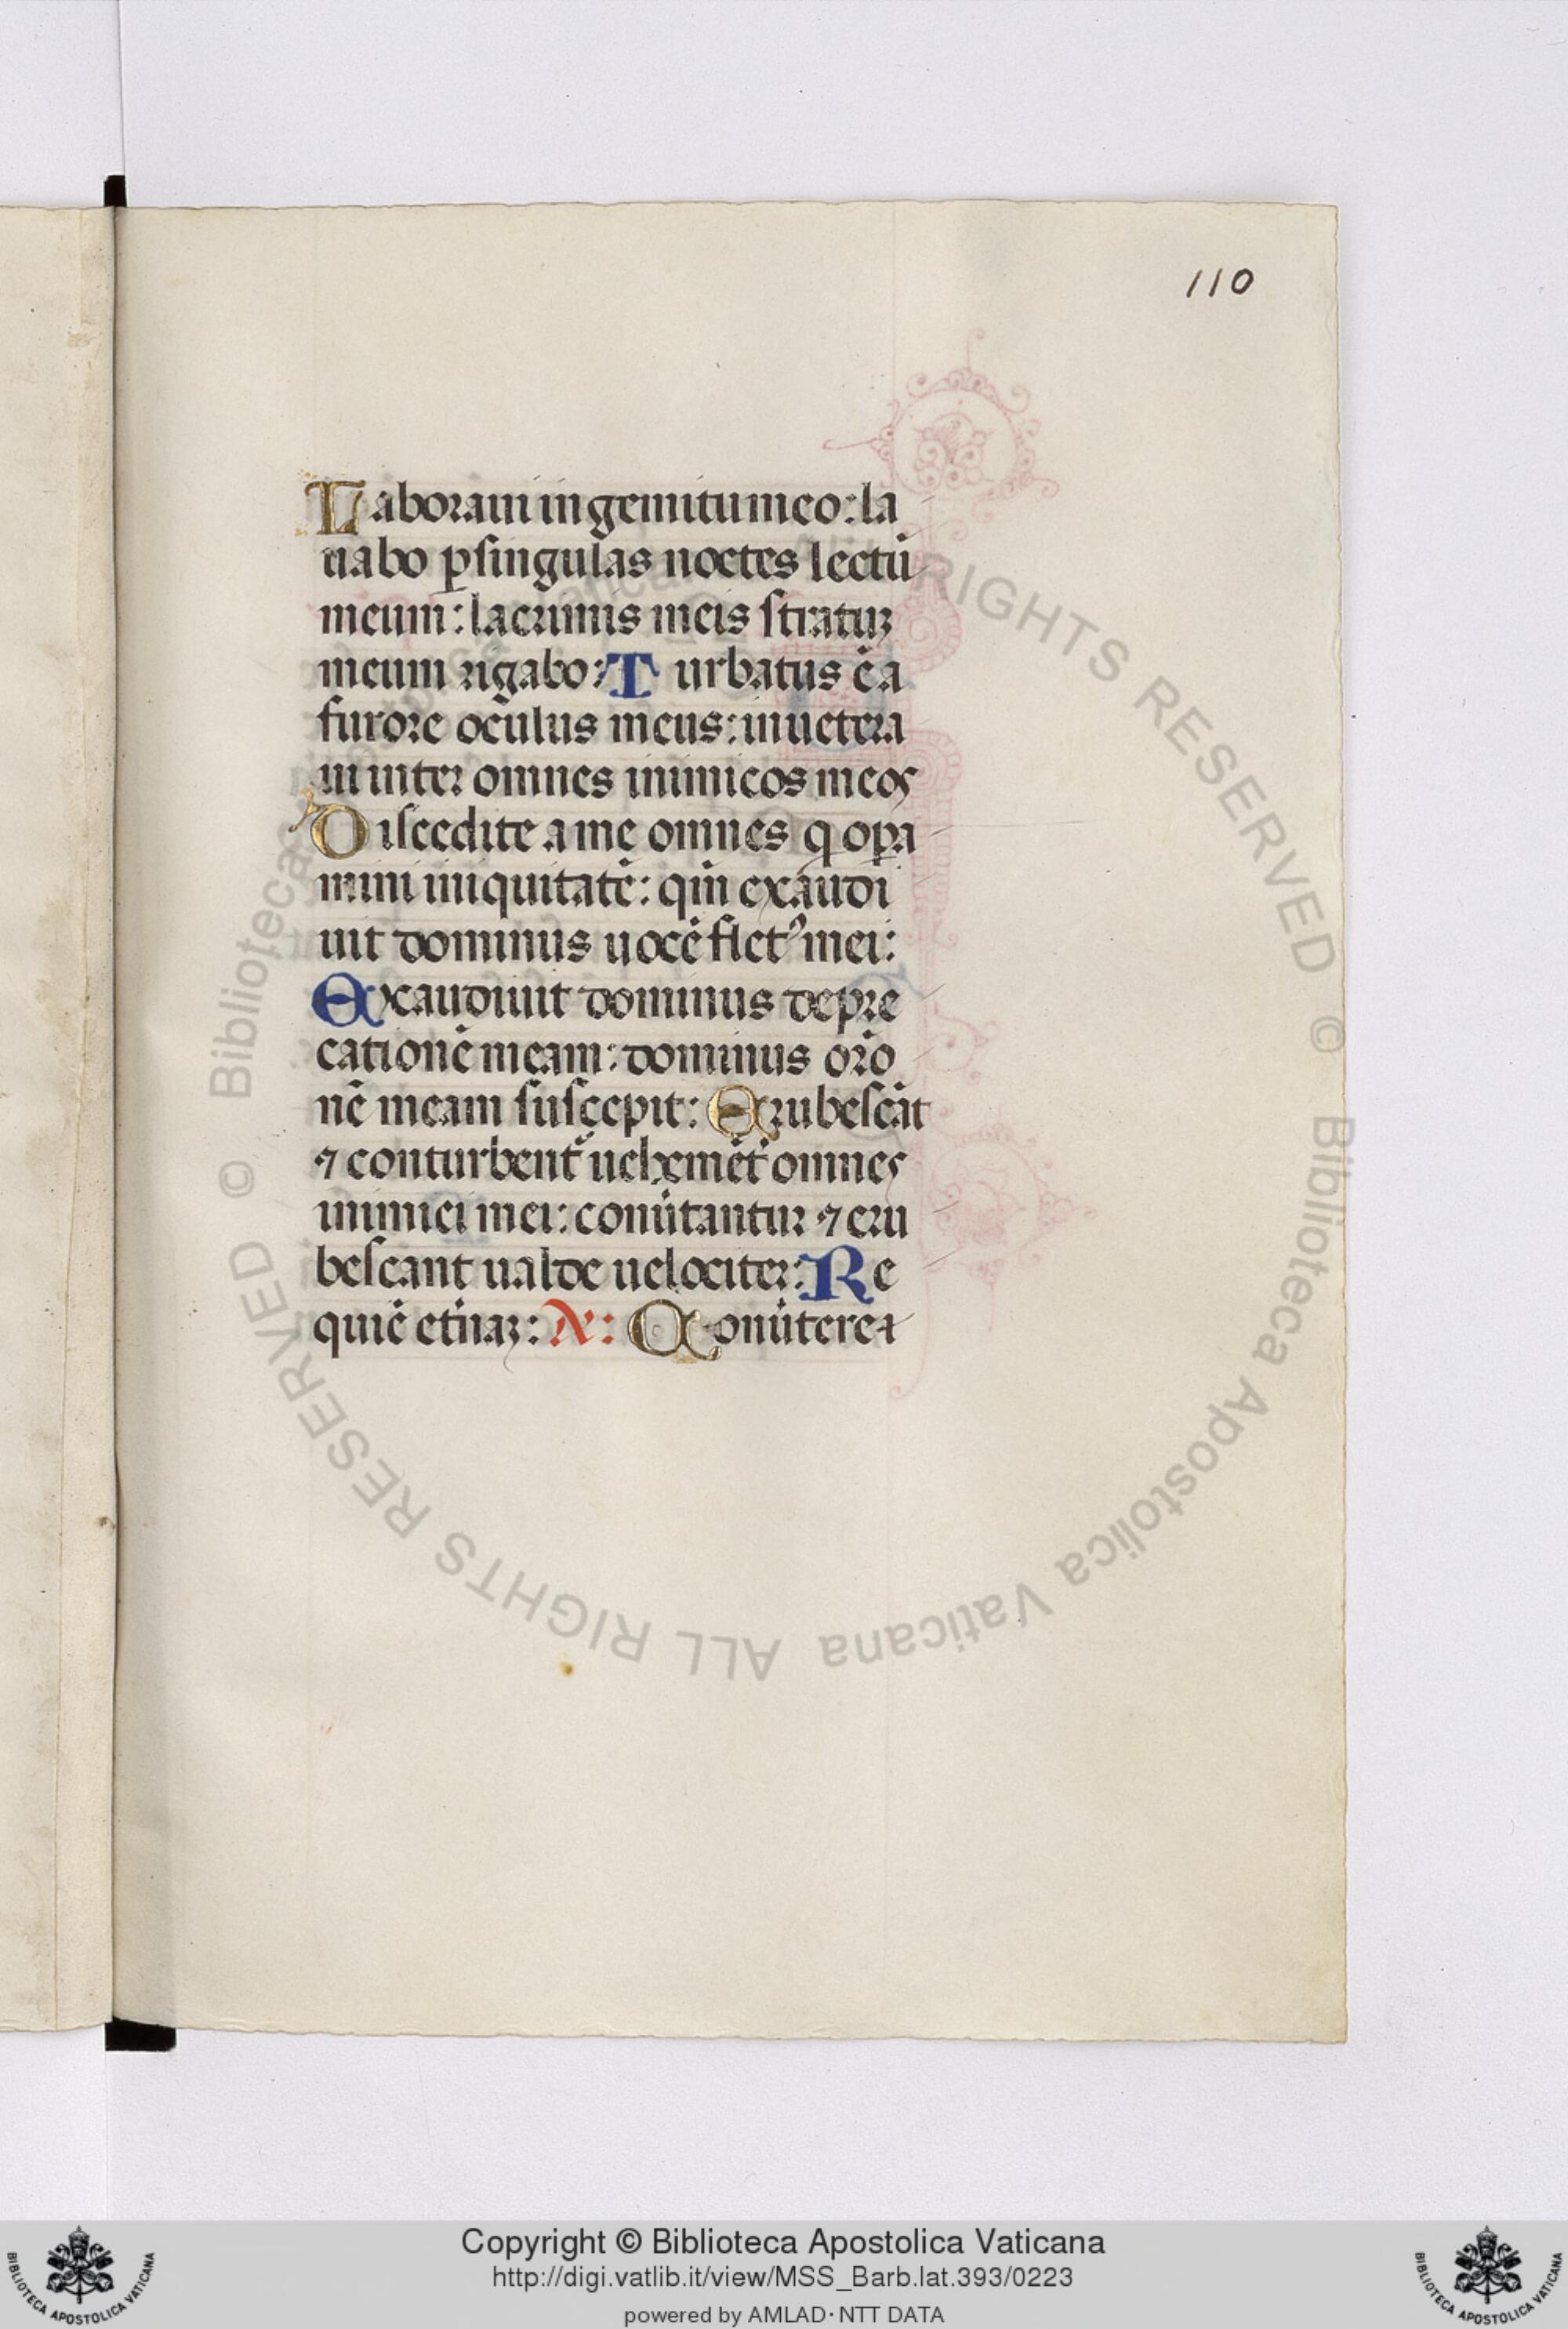 110
Laboraui in gemitu meo: la
uabo ꝑ singulas noctes lectū
meum: lacrimis meis stratuꝫ
meum rigabo: Turbatus ē a
furore oculus meus: inuetera
ui inter omnes inimicos meos
Discedite a me omnes q opa
mini iniquitatē: qm̄ exaudi
uit dominus uocē flet9 mei:
Exaudiuit dominus depre
cationē meam: dominus orō
nē meam suscepit: Erubescāt
⁊ conturbent᷑ uehemēt᷑ omnes
inimici mei: conūtantur ⁊ eru
bescant ualde uelociter: Re
quiē et̄naꝫ: A: Conūtere ⁊
© Biblioteca Apostolica Vaticana ALL RIGHTS RESERVED © Biblioteca Apostolica Vaticana ALL RIGHTS RESERVED
Copyright © Biblioteca Apostolica Vaticana
http://digi.vatlib.it/view/MSS_Barb.lat.393/0223
powered by AMLAD·NTT DATA
BIBLIOTECA APOSTOLICA VATICANA
BIBLIOTECA APOSTOLICA VATICANA